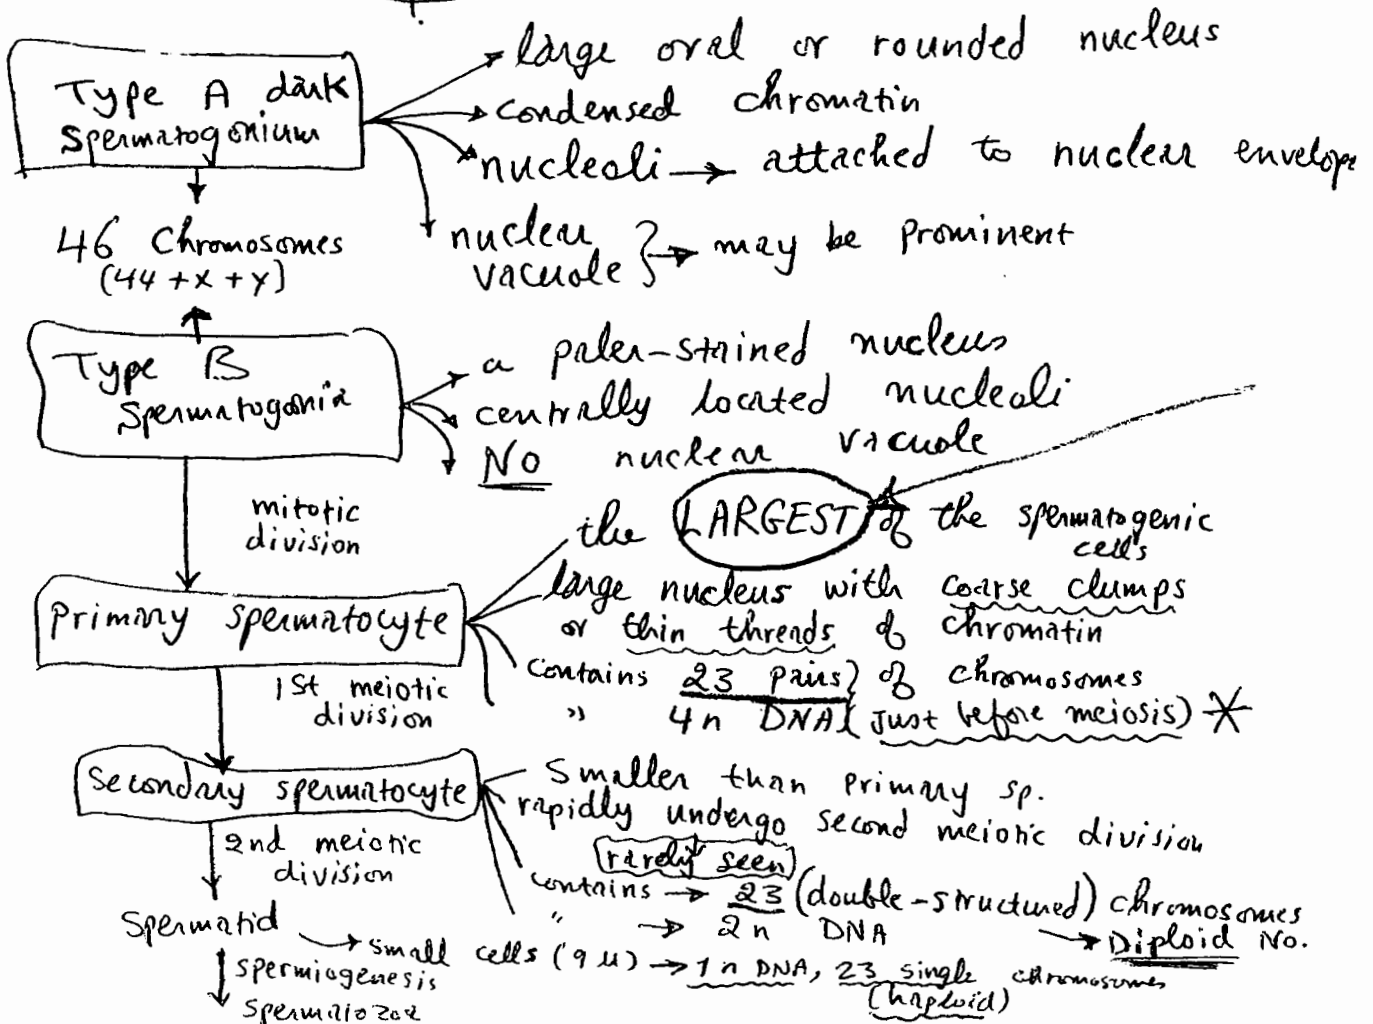 Type A dark
spermatogonium
large oval or rounded nucleus
condensed chromatin
nucleoli → attached to nuclear envelope
nuclear
vacuole } → may be prominent
46 Chromosomes
(44 + X + Y)
Type B
Spermatogonia
a paler-stained nucleus
centrally located nucleoli
No nuclear vacuole
mitotic
division
Primary spermatocyte
the LARGEST of the spermatogenic
cells
large nucleus with coarse clumps
or thin threads of chromatin
contains 23 pairs } of chromosomes
" 4n DNA ( just before meiosis) *
1st meiotic
division
Secondary spermatocyte
Smaller than primary sp.
rapidly undergo second meiotic division
rarely seen
contains → 23 (double-structured) chromosomes
" → 2n DNA → Diploid No.
2nd meiotic
division
Spermatid → small cells (9 µ) → 1n DNA, 23 single chromosomes
(haploid)
spermiogenesis
spermatozoa